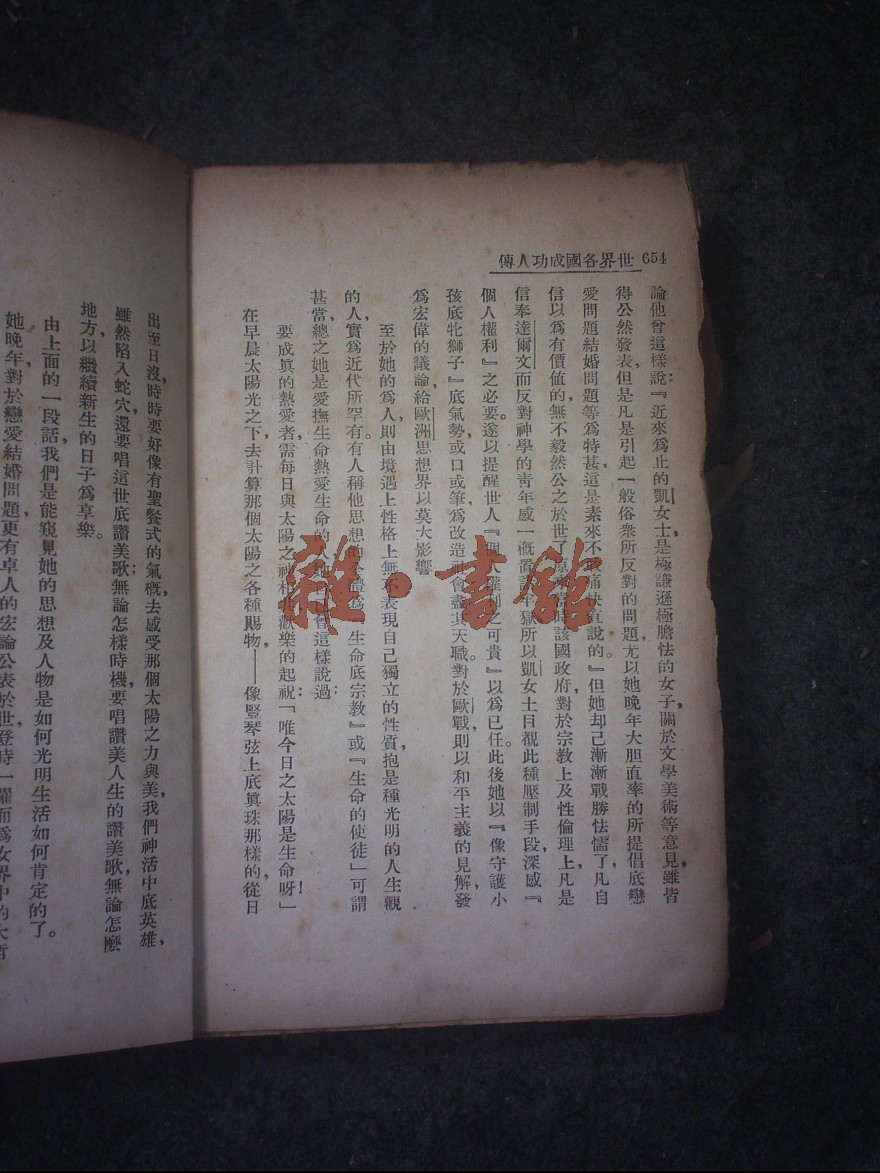 654 世界各國成功人傳
論他曾這樣說：『近來爲止的凱女士，是極謙遜極膽怯的女子，關於文學美術等意見，雖皆
得公然發表，但是凡是引起一般俗衆所反對的問題，尤以她晚年大胆直率的所提倡底戀
愛問題結婚問題等爲特甚，這是素來不敢痛快直說的。』但她却已漸漸戰勝怯懦了，凡自
信以爲有價值的，無不毅然公之於世了。原來當時該國政府，對於宗教上及性倫理上，凡是
信奉達爾文而反對神學的青年，咸一概置諸牢獄，所以凱女士目覩此種壓制手段，深感『
個人權利』之必要。遂以提醒世人『個人權利之可貴』以爲已任。此後她以『像守護小
孩底牝獅子』底氣勢，或口或筆，爲改造社會盡其天職。對於歐戰，則以和平主義的見解，發
爲宏偉的議論，給歐洲思想界以莫大影響。
至於她的爲人，則由境遇上性格上，無不表現自己獨立的性質，抱是種光明的人生觀
的人，實爲近代所罕有。有人稱他思想的全體爲『生命底宗教』或『生命的使徒』可謂
甚當，總之她是愛撫生命熱愛生命的人，她已曾這樣說過：
要成眞的熱愛者，需每日與太陽之神相共歡樂的起祝：「唯今日之太陽是生命呀！」
在早晨太陽光之下，去計算那個太陽之各種賜物——像豎琴弦上底眞珠那樣的，從日
出至日沒，時時要好像有聖餐式的氣概，去感受那個太陽之力與美，我們神活中底英雄，
雖然陷入蛇穴，還要唱這世底讚美歌；無論怎樣時機，要唱讚美人生的讚美歌，無論怎麼
地方，以繼續新生的日子爲享樂。
由上面的一段話，我們是能窺見她的思想及人物是如何光明，生活如何肯定的了。
她晚年對於戀愛結婚問題，更有卓人的宏論公表於世，登時一躍而爲女界中的大哲